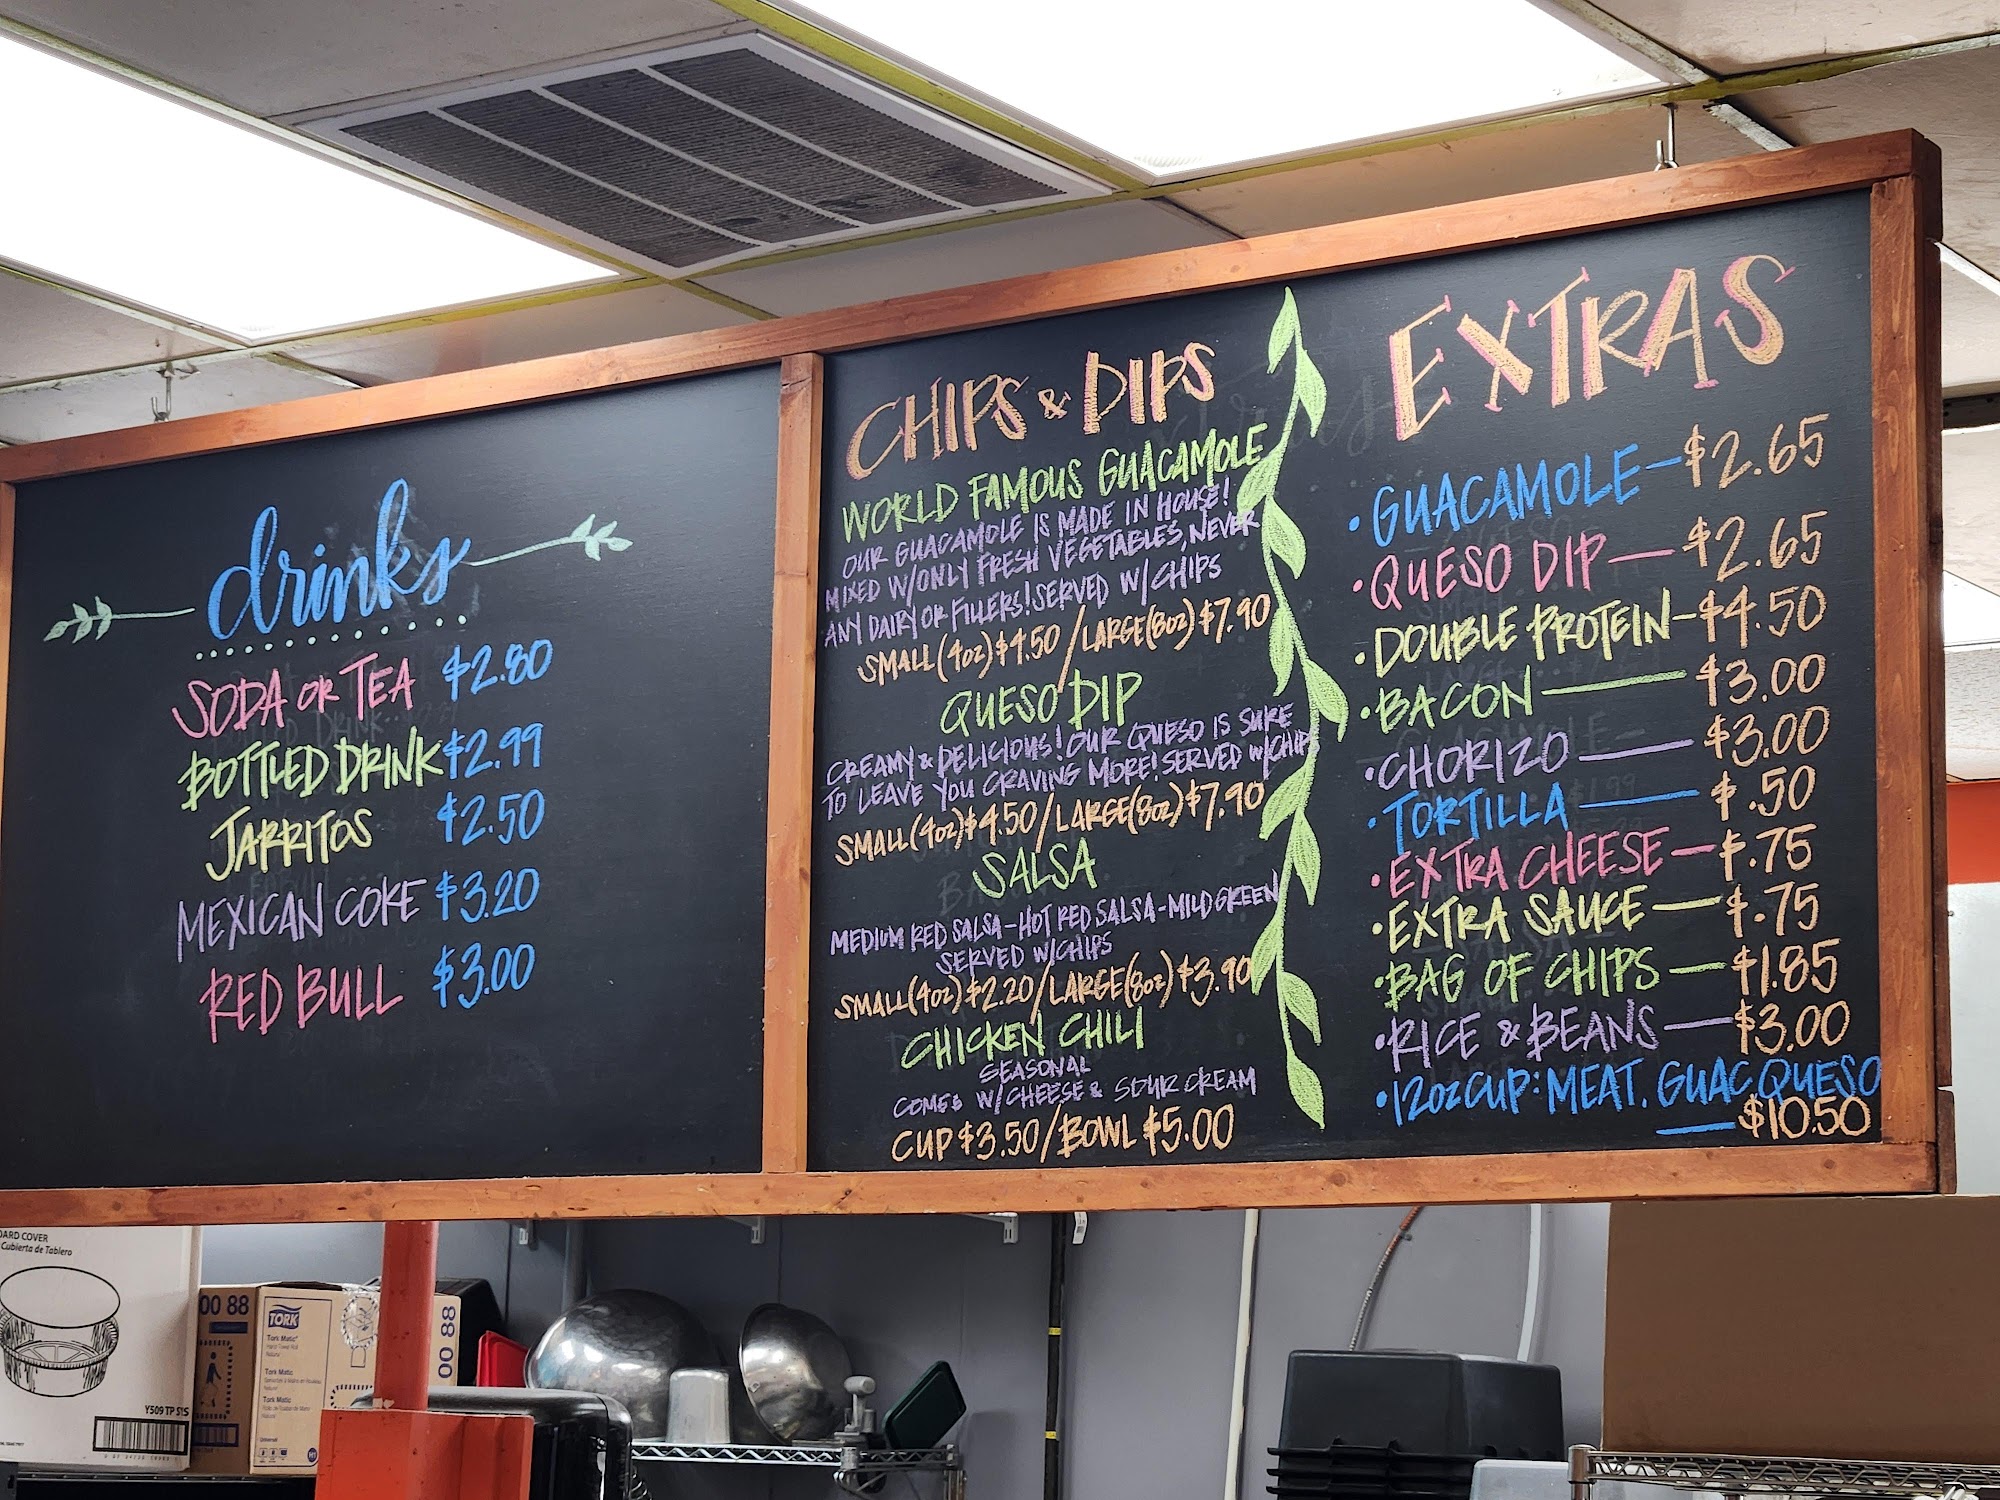 drinks
SODA OR TEA $2.80
BOTTLED DRINK $2.99
JARRITOS $2.50
MEXICAN COKE $3.20
RED BULL $3.00
CHIPS & DIPS
WORLD FAMOUS GUACAMOLE
OUR GUACAMOLE IS MADE IN HOUSE!
MIXED W/ONLY FRESH VEGETABLES, NEVER
ANY DAIRY OR FILLERS! SERVED W/CHIPS
SMALL (4oz) $4.50 / LARGE (8oz) $7.90
QUESO DIP
CREAMY & DELICIOUS! OUR QUESO IS SURE
TO LEAVE YOU CRAVING MORE! SERVED W/CHIPS
SMALL (4oz) $4.50 / LARGE (8oz) $7.90
SALSA
MEDIUM RED SALSA - HOT RED SALSA - MILD GREEN
SERVED W/CHIPS
SMALL (4oz) $2.20 / LARGE (8oz) $3.90
CHICKEN CHILI
SEASONAL
COMES W/CHEESE & SOUR CREAM
CUP $3.50 / BOWL $5.00
EXTRAS
• GUACAMOLE — $2.65
• QUESO DIP — $2.65
• DOUBLE PROTEIN — $4.50
• BACON — $3.00
• CHORIZO — $3.00
• TORTILLA — $.50
• EXTRA CHEESE — $.75
• EXTRA SAUCE — $.75
• BAG OF CHIPS — $1.85
• RICE & BEANS — $3.00
• 12oz CUP: MEAT. GUAC QUESO
— $10.50
OARD COVER
Cubierta de Tablero
Y509TP
00 88
TORK
Tork Matic
Tork Matic
Tork Matic
00 88